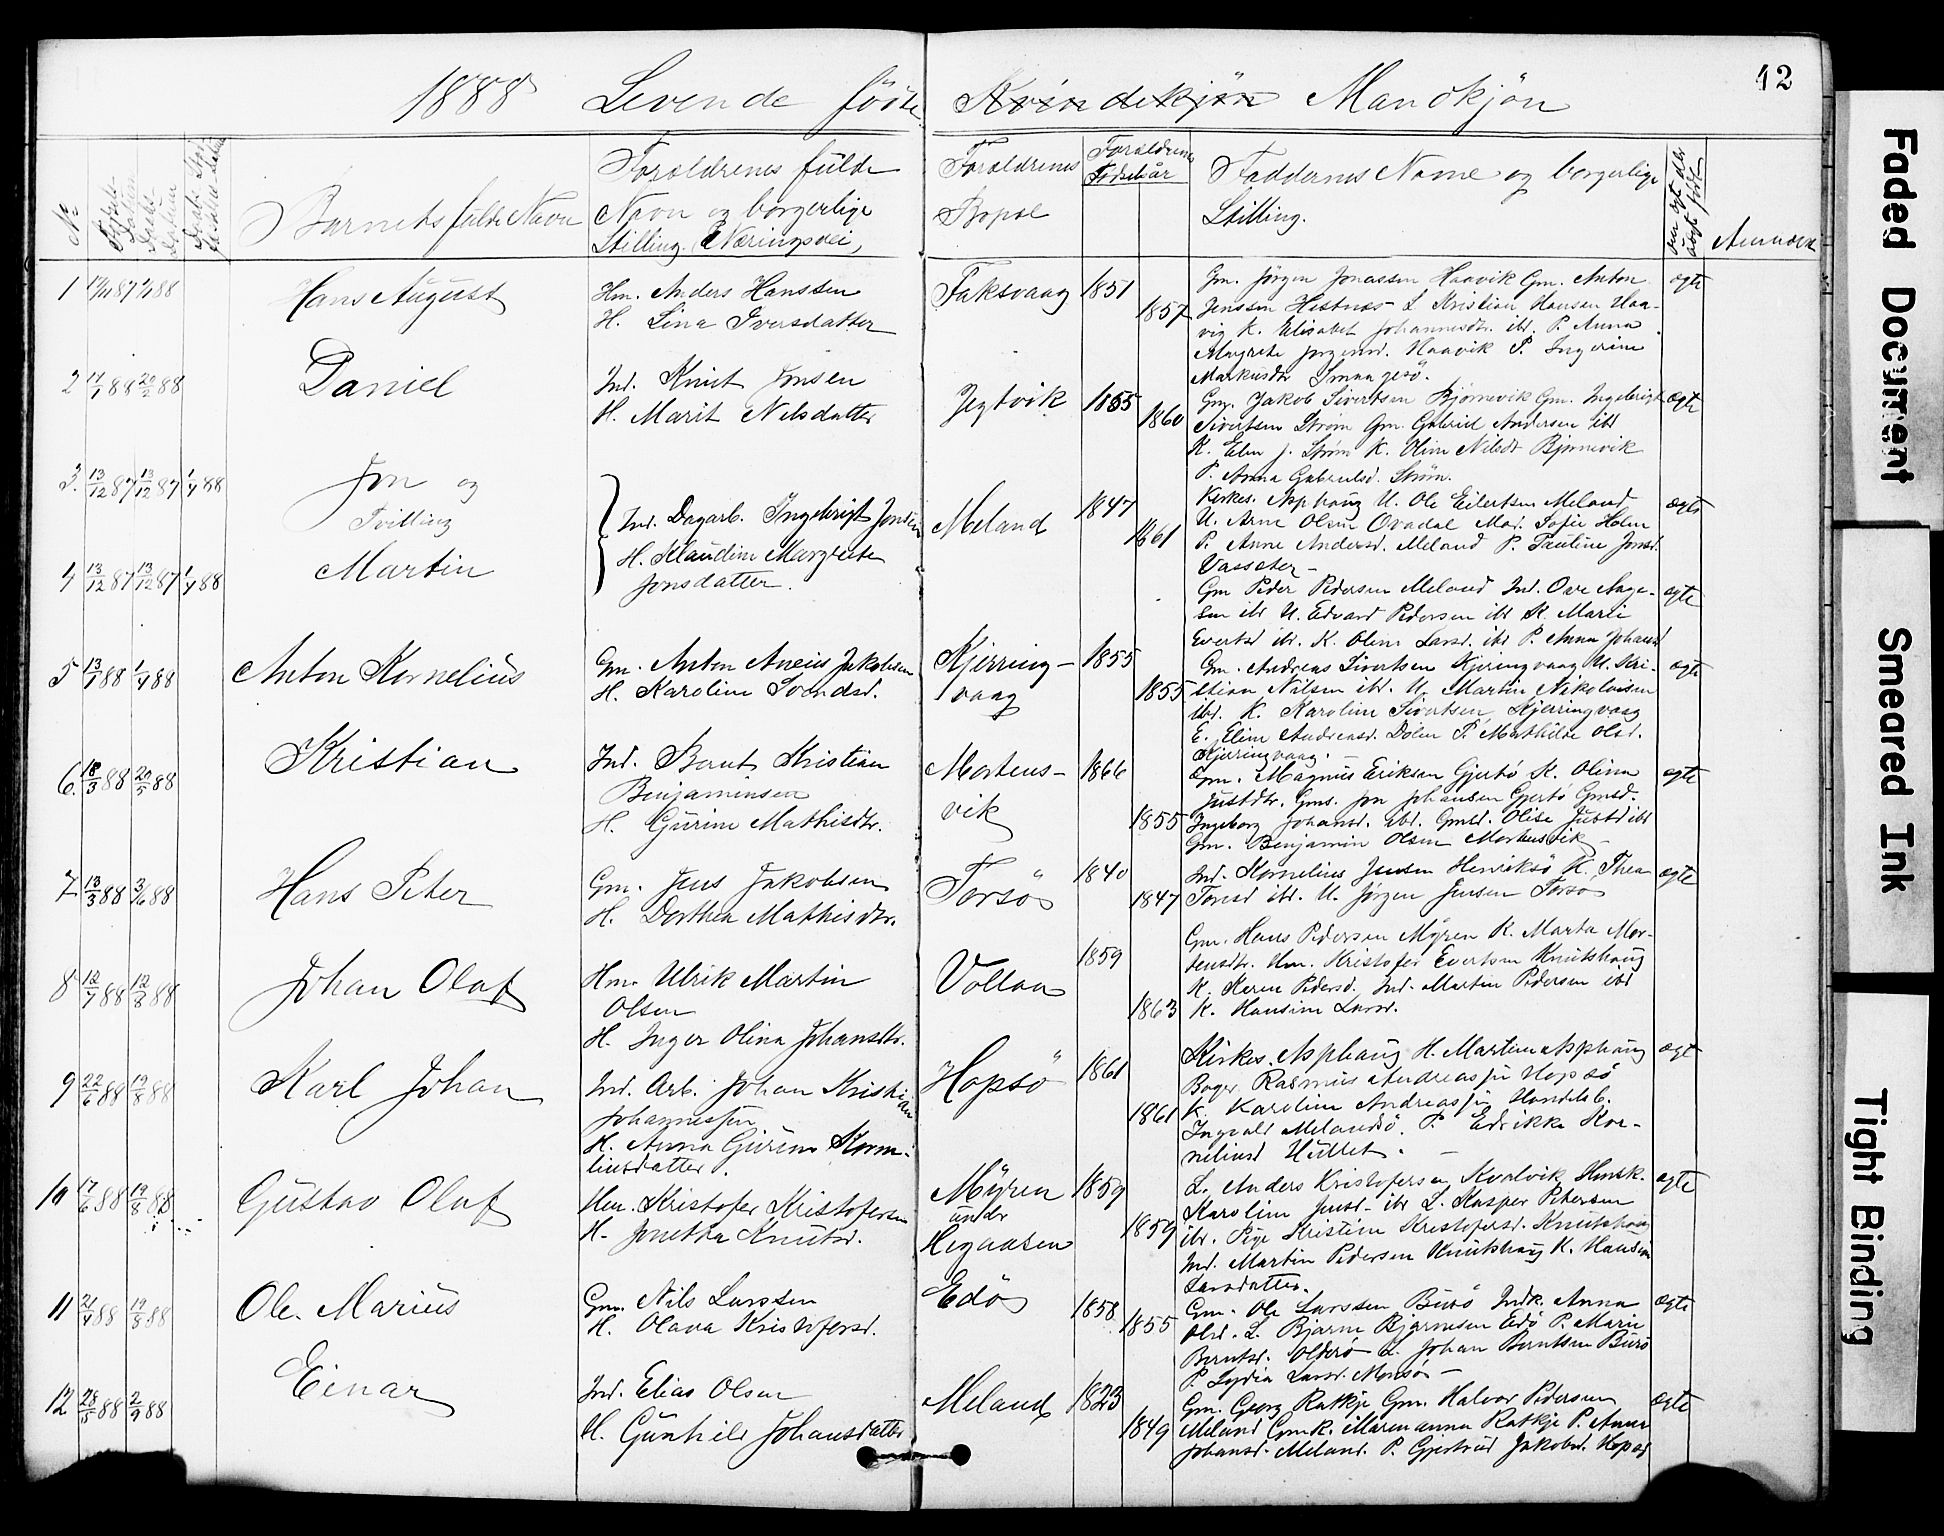 12
1888 Levende føde Kvindekjøn Mandkjøn
No
Barnets fulde Navn
Foroldrenes fulde
Navn og borgerlige
Stilling (Næringsvei)
Foroldrenes
Bopæl
Foroldrenes
Fødselsår
Faddernes Navne og borgerlige
Stilling.
Anmærk
1 7/1 88
Hans August
Hm. Anders Hanssen
H. Lina Iversdatter
Faksvaag 1851
1857
Gm. Jörgen Jonassen Haavik Gm. Anton
Jenssen Hestnes L Kristian Hansen Haa-
vig K. Elisabet Johannesdtr. ibd. P. Anna
Margrete Jørgensd. Haavik P. Ingerine
Markusdtr Smaagesö.
ægte
2 17/1 88 20/2 88
Daniel
Ind. Knut Jonsen
H. Marit Nilsdatter
Jegtvik 1855
1860
Gm. Jakob Sivertsen Bjørnevik Gm. Ingebrigt
Sivertsen Strøm Gm. Gabriel Andersen ibd
K. Elen J. Strøm K. Oline Nilsdt Bjørnevik
P. Anna Gabrielsd. Strøm.
ægte
3. 13/12 87 13/12 87 1/4 88
Jon og
Tvilling
4 13/12 87 13/12 87 1/4 88
Martin
Ind. Dagarb. Ingebrigt Jonsen
H. Klaudine Margrete
Jonsdatter.
Meland 1847
1861
Kirkes. Asphaug U. Ole Eilertsen Meland
U. Arne Olsen Ovadal Mad. Sofie Holm
P. Anne Andersd. Meland P. Pauline Jonsd.
Vasseter –
ægte
Gm Peder Pedersen Meland Ind. Ove Aage-
sen ibd U. Edvard Pedersen ibd K. Marie
Evertsd ibd. K. Oline Larsd. ibd P. Anna Johansd
ægte
5 13/1 88 1/4 88
Anton Kornelius
Gm. Anton Aneus Jakobsen
H. Karoline Svendsd.
Kjerring-
vaag
1855
1855
Gm. Andreas Sivertsen Kjeringvaag U. Kri-
stian Nilsen ibd. U. Martin Nikolaisen
ibd. K. Karoline Sivertsen Kjerringvaag
E. Eline Andreasd. Dolm P. Mathilde Olsd.
Kjerringvaag. –
ægte
6. 18/3 88 20/5 88
Kristian
Ind. Bernt Kristian
Benjaminsen
H. Gurine Mathisdtr.
Mortens-
vik
1866
1855
Gm. Magnus Eriksen Gjertö K. Olina
Justdtr. Gms. Jon Johansen Gjertö Gmsd.
Ingeborg Johansd. ibd. Gmsd. Olise Justd ibd
Gm. Benjamin Olsen Mortensvik
ægte
7 13/3 88 3/6 88
Hans Peter
Gm. Jens Jakobsen
H. Dorthea Mathisdtr.
Torsö 1840
1847
Ind. Kornelius Jensen Henriksö K. Thea
Toresd ibd. U. Jörgen Jensen Torsö
ægte
8 12/7 88 12/8 88
Johan Olaf
Hm. Ulrik Martin
Olsen
H. Inger Olina Johansdtr.
Vollan
1859
1863
Gm. Hans Pedersen Myren K. Marta Mor-
tensdtr. Hm. Kristofer Evertsen Knutshaug
K. Karen Pedersd. Ind. Martin Pedersen ibd
K. Hansine Larsd.
9 22/6 88 19/8 88
Karl Johan
Ind. Arb. Johan Kristian
Johannessen
H. Anna Gurine Korne-
liusdatter.
Hopsö 1861
1861
Kirkes. Asphaug H. Martine Asphaug
Bager Rasmus Andreassen Hopsö
K. Karoline Andreassen Handelsb.
Ingvald Melandsö. P. Edrikke Kor-
neliusd Hullet. –
ægt
10 17/6 88 19/8 88
Gustav Olaf
Hm. Kristofer Kristofersen
H. Jonetta Knutsd.
Myren
under
Hegaasen
1859
1859
L. Anders Kristofersen Kvalvik Hmsk.
Karoline Jensd. ibd L. Kasper Petersen
ibd. Pige Kristine Kristofersd. Knutshaug
Ind. Martin Pedersen Knutshaug K. Hansine
Larsdatter.
ægte
11 21/4 88 19/8 88
Ole Marius
Gm. Nils Larssen
H. Olava Kristofersd.
Edö
1858
1855
Gm. Ole Larssen Burö Indk. Anna
Olsd. L. Bjarne Bjarnesen Edö P. Marie
Berntsd. Olderö L. Johan Berntsen Burö
P. Lydia Larsd. Monsö –
ægte
12 28/5 88 2/9 88
Einar
Ind. Elias Olsen
H. Gunhild Johansdatter
Meland 1823
1849
Gm. Georg Ratkje Gm. Halvor Pedersen
Meland Gmk. Maren Anna Ratkje P. Anne
Johansd. Meland. P. Gjertrud Jakobsd. Hopsö
ægte
Faded Document
Smeared Ink
Tight Binding